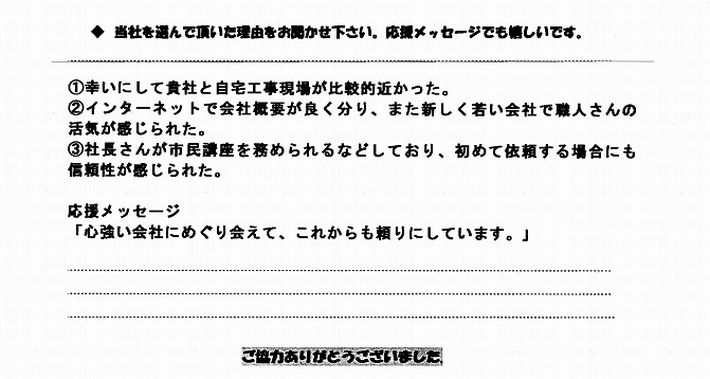 ◆ 当社を選んで頂いた理由をお聞かせ下さい。応援メッセージでも嬉しいです。
①幸いにして貴社と自宅工事現場が比較的近かった。
②インターネットで会社概要が良く分り、また新しく若い会社で職人さんの
活気が感じられた。
③社長さんが市民講座を務められるなどしており、初めて依頼する場合にも
信頼性が感じられた。
応援メッセージ
「心強い会社にめぐり会えて、これからも頼りにしています。」
ご協力ありがとうございました